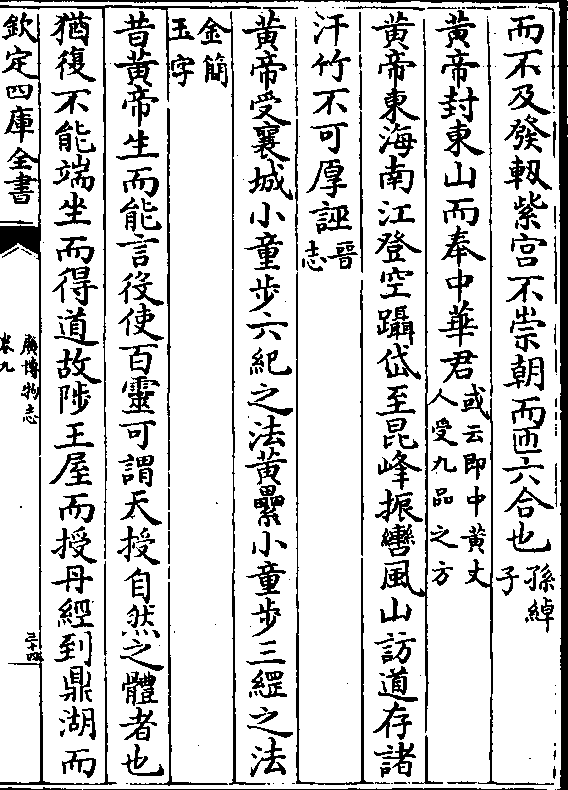 而不及發軔紫宫不崇朝而匝六合也孫綽
子
黄帝封東山而奉中華君或云即中黄丈
人受九品之方
黄帝東海南江登空躡岱至昆峰振轡風山訪道存諸
汗竹不可厚誣晉
志
黄帝受襄城小童步六紀之法黄纍小童步三綱之法
金簡
玉字
昔黄帝生而能言役使百靈可謂天授自然之體者也
猶復不能端坐而得道故陟王屋而授丹經到鼎湖而
欽定四庫全書
廣博物志
卷九
三十四